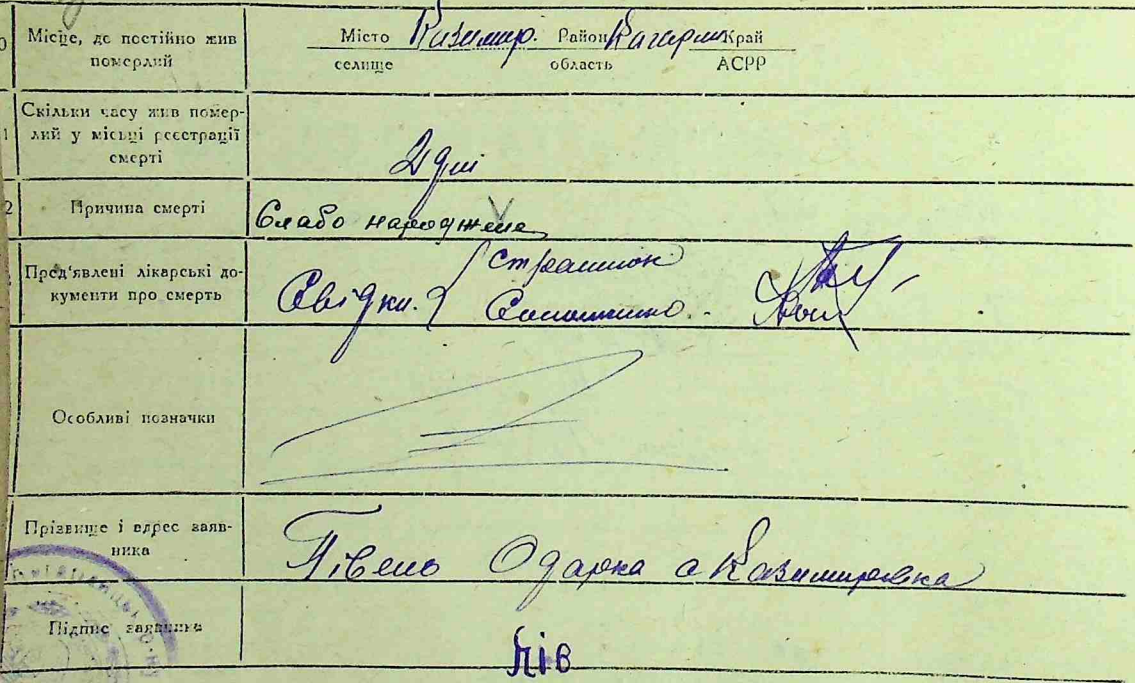 0 Місце, де постійно жив
померлий
Місто Казимир. Район Кагарлик Край
селище область АСРР
1 Скільки часу жив помер-
лий у місці реєстрації
смерті
2 дні
2 Причина смерті
Слабо народжене
Пред'явлені лікарські до-
кументи про смерть
Страшнок
Свідки.
Особливі позначки
Прізвище і адрес заяв-
ника
Півень Одарка с Казимировка
Підпис заявника
Пів